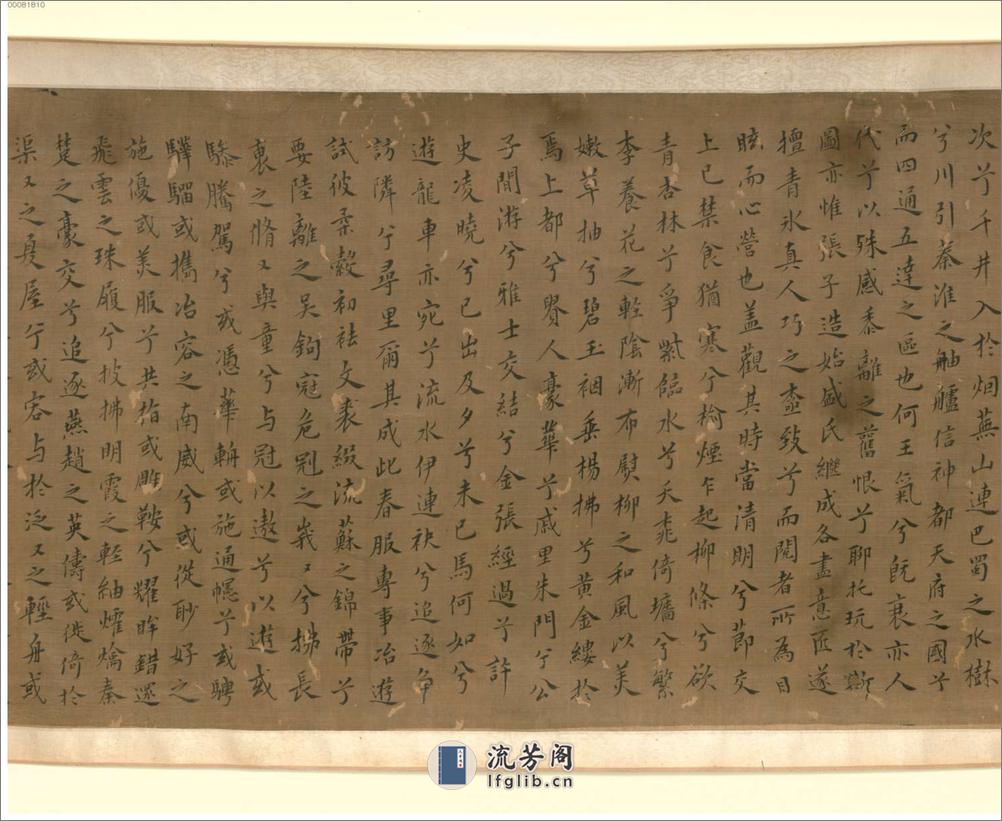 00081810
次兮千井入於烟蕪山連巴蜀之水樹
兮川引秦淮之舳艫信神都天府之國兮
而四通五達之區也何王氣兮旣衰亦人
代兮以殊感黍離之舊恨兮聊托玩於斯
圖亦惟張子造始盛氏繼成各盡意匠遂
擅青氷真人巧之臺致兮而閱者所為目
眩而心營也盖觀其時當清明兮節交
上巳禁食猶寒兮榆煙乍起柳條兮欲
青杏林兮爭紫臨水兮夭桃倚墻兮繁
李養花之輕陰漸布熨柳之和風以美
嫩草抽兮碧玉裀垂楊拂兮黃金縷於
焉上都兮賢人豪華兮戚里朱門兮公
子間游兮雅士交結兮金張經過兮許
史凌曉兮已出及夕兮未已馬何如兮
遊龍車亦宛兮流水伊連袂兮追逐爭
訪隣兮尋里爾其成此春服專事冶遊
試彼柔縠初袪文裘綴流蘇之錦帶兮
要陸離之吳鉤冠危冠之峩〻兮拂長
裒之脩〻與童兮与冠以遨兮以遊或
驂騰駕兮或憑華輈或施通幰兮或騁
驊騮或攜冶容之南威兮或從聁好之
施優或美服兮共指或雕鞍兮耀眸錯遝
飛雲之珠履兮披拂明霞之輕紬燿爚秦
楚之豪交兮追逐燕趙之英儔或徙倚於
渠〻之夏屋兮或容与於泛〻之輕舟或
流芳阁
lfglib.cn